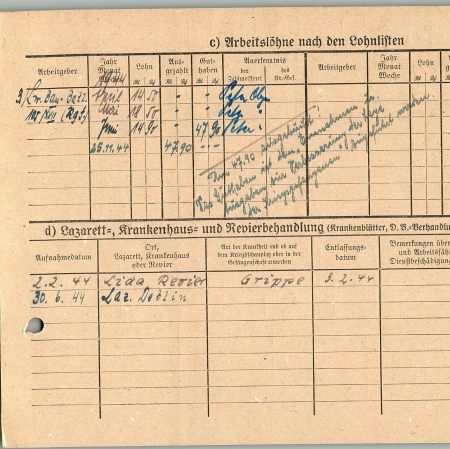 c) Arbeitslöhne nach den Lohnlisten
Arbeitgeber
Jahr
Monat
Woche
Lohn
Aus-
gezahlt
Gut-
haben
Anerkenntnis
der
Zahlmeisterei
des
Kr.-Gef.
Arbeitgeber
Jahr
Monat
Woche
Lohn
1944
April 14 50 - -
Mai 18 50 - -
Juni 14 90 - 47.90
25.11.44 47.90 - -
47.90
Das Guthaben ist den Einnahmen zu
der Kriegsgefangenen zugeführt worden.
d) Lazarett-, Krankenhaus- und Revierbehandlung (Krankenblätter, D. B.-Verhandlu
Aufnahmedatum
Ort,
Lazarett, Krankenhaus
oder Revier
Art der Krankheit und ob auf
dem Kriegsschauplatz oder in der
Gefangenschaft erworben
Entlassungs-
datum
Bemerkungen über
und Arbeitsfäh
Dienstbeschädigun
2.2.44 Lida Revier Grippe 3.2.44
30.6.44 Laz. Deblin